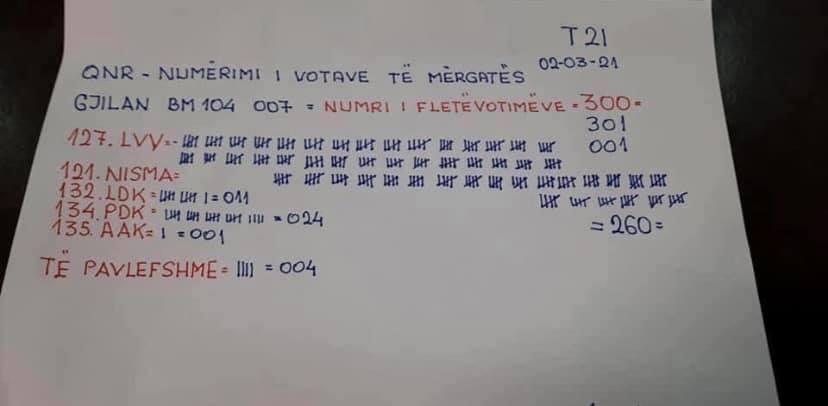 T 21
QNR - NUMËRIMI I VOTAVE TË MËRGATËS 02-03-21
GJILAN BM 104 007 = NUMRI I FLETËVOTIMËVE = 300=
301
127. LVV=- 001
121. NISMA=
132. LDK= = 011
134. PDK = = 024
= 260=
135. AAK= I = 001
TË PAVLEFSHME= IIII = 004